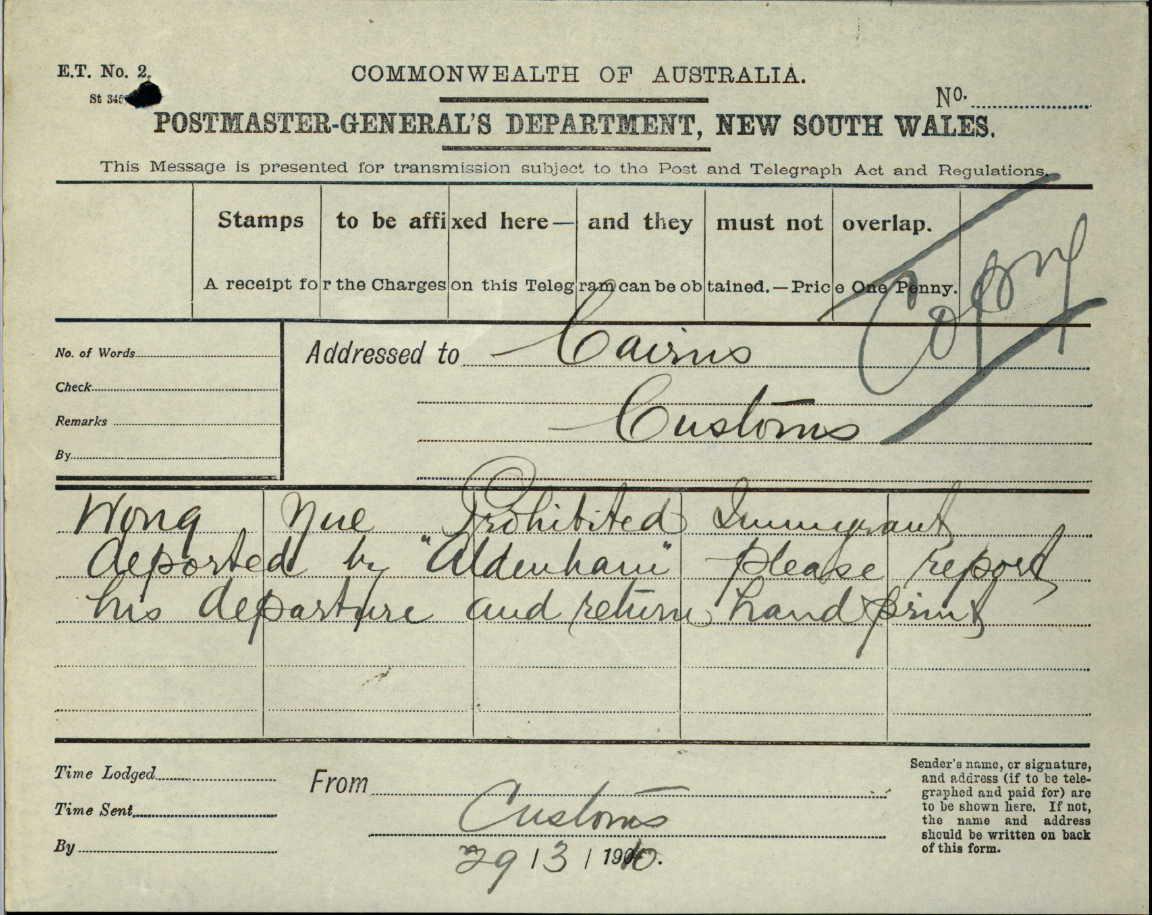 E.T. No. 2.
COMMONWEALTH OF AUSTRALIA.
No.
POSTMASTER-GENERAL'S DEPARTMENT, NEW SOUTH WALES.
This Message is presented for transmission subject to the Post and Telegraph Act and Regulations.
Stamps to be affixed here— and they must not overlap.
A receipt for the Charges on this Telegram can be obtained.—Price One Penny.
Copy
No. of Words
Addressed to Cairns
Check
Remarks
Customs
By
Wong Nue Prohibited Immigrant
deported by "Aldenham" please report
his departure and return hand print
Time Lodged
From
Time Sent
Customs
By
29/3/1910.
Sender's name, or signature,
and address (if to be tele-
graphed and paid for) are
to be shown here. If not,
the name and address
should be written on back
of this form.